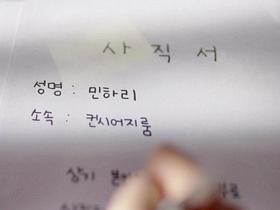 사직서
성명 : 민하리
소속 : 컨시어지룸
상기 본